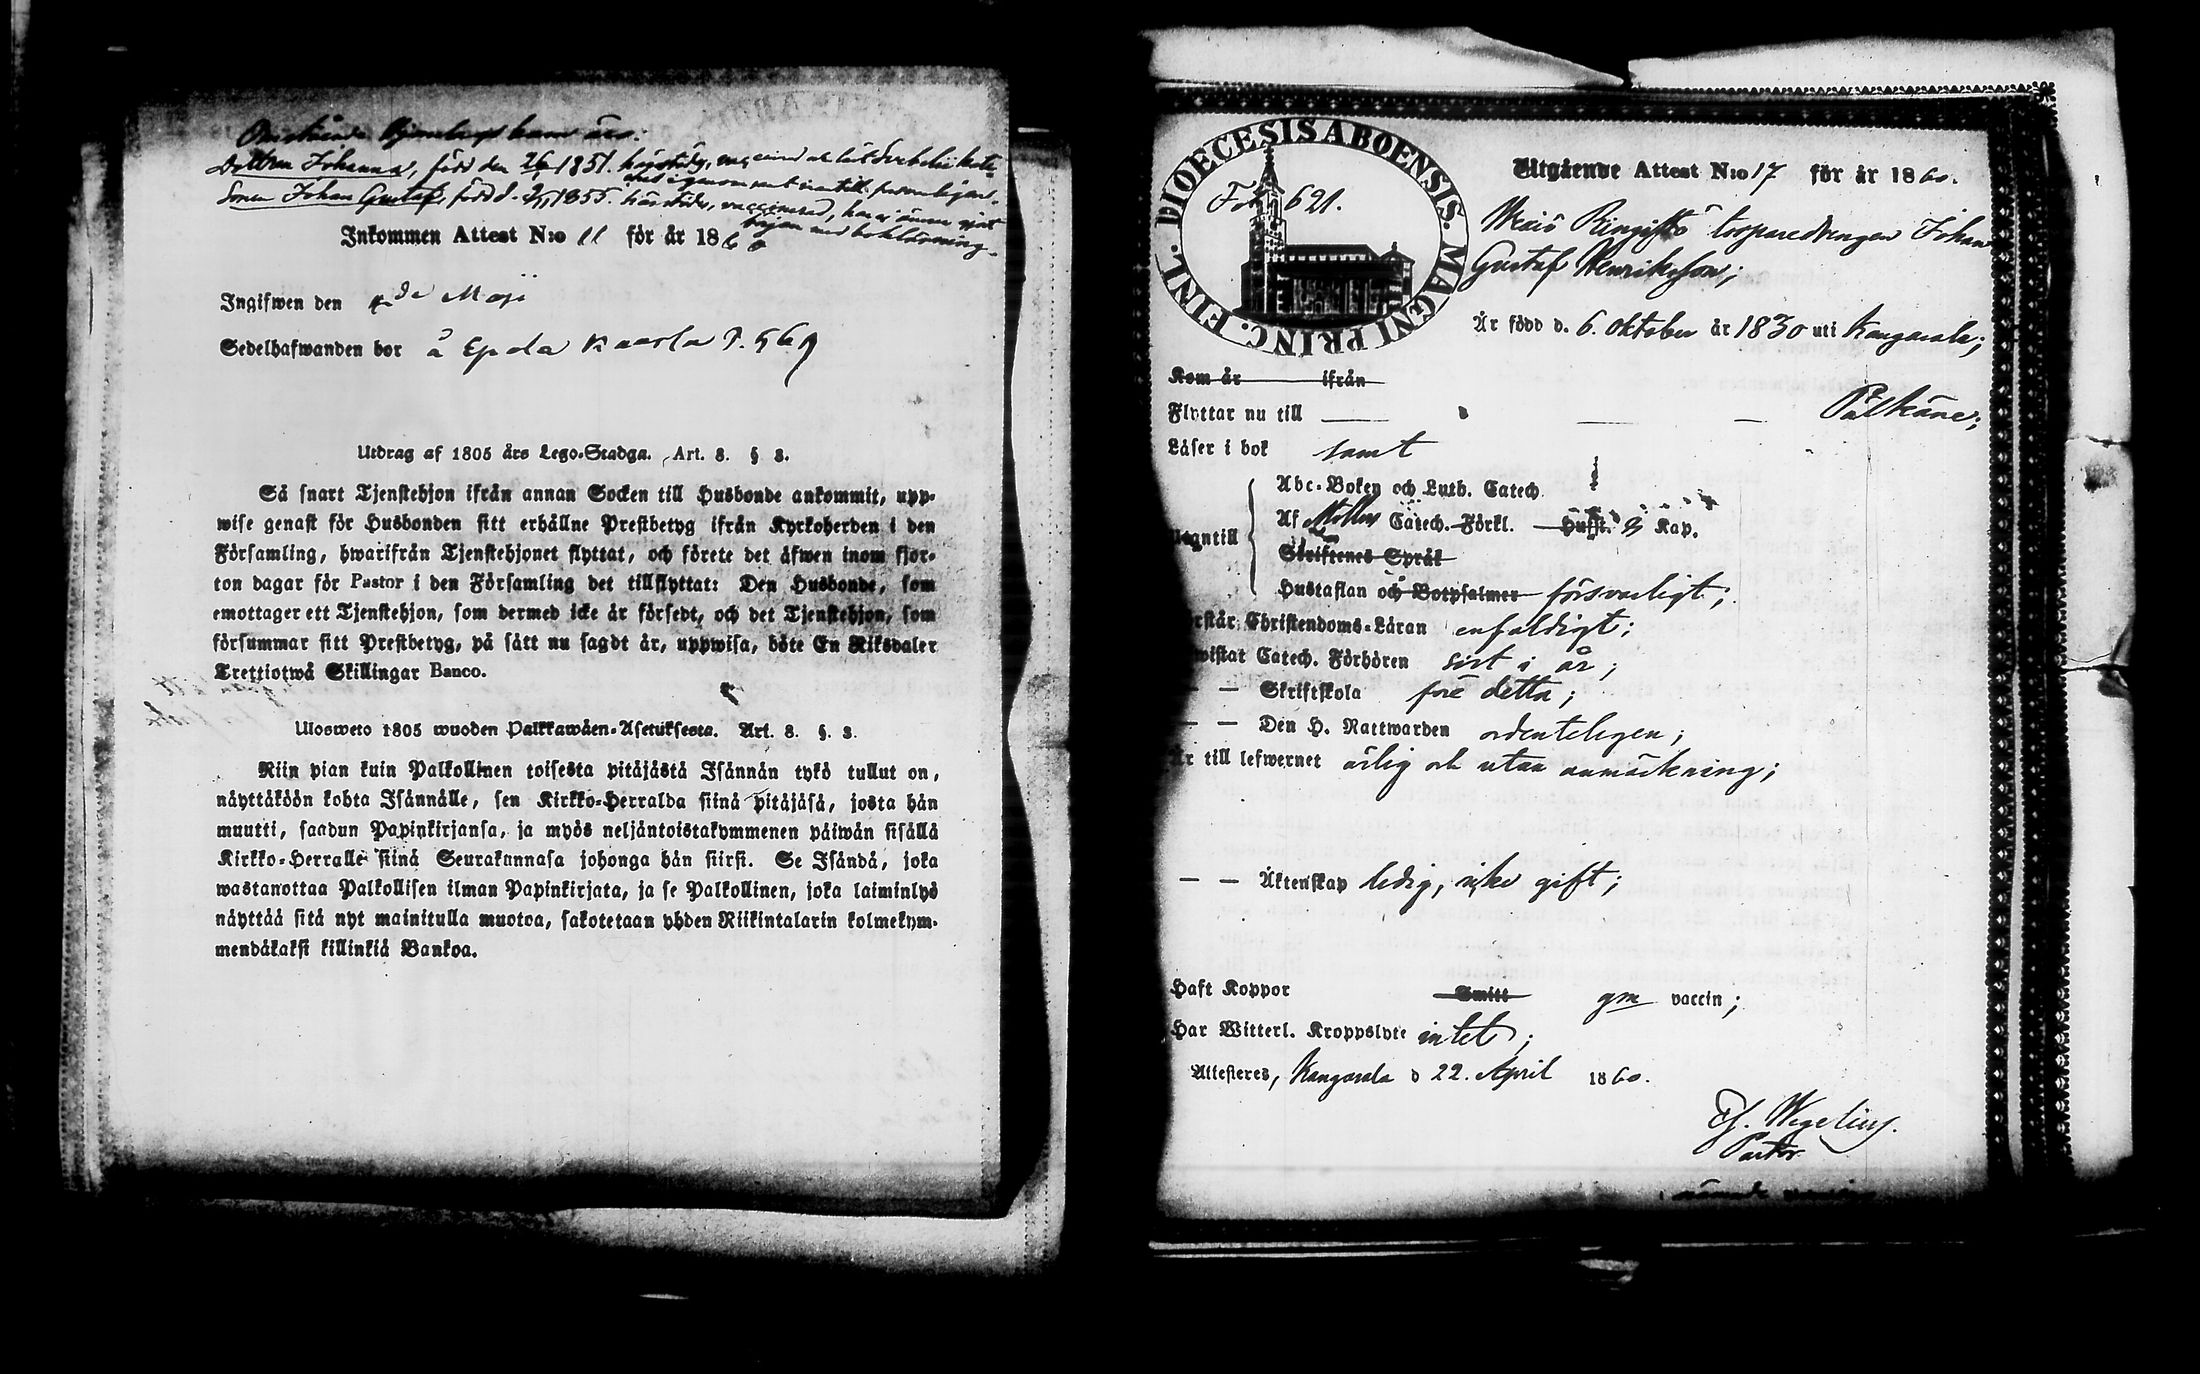 Dottren Johanna, född den 26/ 1851.
Sonen Johan Gustaf, född d. 1855. vaccinerad, har
med bokläsning.
Inkommen Attest N:o 11 för år 1860
Ingifwen den de Maji
Sedelhafwanden bor å Epola Kaarla P. 569
Utdrag af 1805 års Lego-Stadga. Art. 8. § 8.
Så snart Tjenstehjon ifrån annan Socken till Husbonde ankommit, upp-
wise genast för Husbonden sitt erhållne Prestbetyg ifrån Kyrkoherden i den
Församling, hwarifrån Tjenstehjonet flyttat, och förete det äfwen inom fjor-
ton dagar för Pastor i den Församling det tillflyttat: Den Husbonde, som
emottager ett Tjenstehjon, som dermed icke är försedt, och det Tjenstehjon, som
försummar sitt Prestbetyg, på sätt nu sagdt är, uppwisa, böte En Riksdaler
Trettiotwå Skillingar Banco.
Ulosweto 1805 wuoden Palkkawäen-Asetuksesta. Art. 8. §. 8.
Niin pian kuin Palkollinen toisesta pitäjästä Isännän tykö tullut on,
näyttäköön kohta Isännälle, sen Kirkko-Herralda siinä pitäjäsä, josta hän
muutti, saadun Papinkirjansa, ja myös neljäntoistakymmenen päiwän sisällä
Kirkko-Herralle siinä Seurakunnasa johonga hän siirsi. Se Isändä, joka
wastanottaa Palkollisen ilman Papinkirjata, ja se Palkollinen, joka laiminlyö
näyttää sitä nyt mainitulla muotoa, sakotetaan yhden Riikintalarin kolmekym-
mendäkaksi killinkiä Bankoa.
DIOECESIS ABOENSIS. MAGNI PRINC. FINL.
Fol 621.
Utgående Attest N:o 17 för år 1860.
torparedrengen Johan
Gustaf Henriksson;
Är född d. 6. oktober år 1830 uti Kangasala;
Kom år ifrån
Flyttar nu till Pälkäne;
Läser i bok samt
Abc-Boken och Luth. Catech.
Utantill Af Möllers Catech. Förkl. Hufst. Kap.
Skriftenes Språk
Hustaflan och Botpsalmer försvarligt;
rstår Christendoms-Läran enfaldigt;
wistat Catech. Förhören sist i år;
— — Skriftskola före detta;
— — Den H. Nattwarden ordenteligen;
r till lefwernet ärlig och utan anmärkning;
— — Äktenskap ledig, icke gift;
Haft Koppor Smitt gm vaccin;
Har Witterl. Kroppslyte intet;
Attesteres, Kangasala d 22. April 1860.
Wegelius.
Pastor